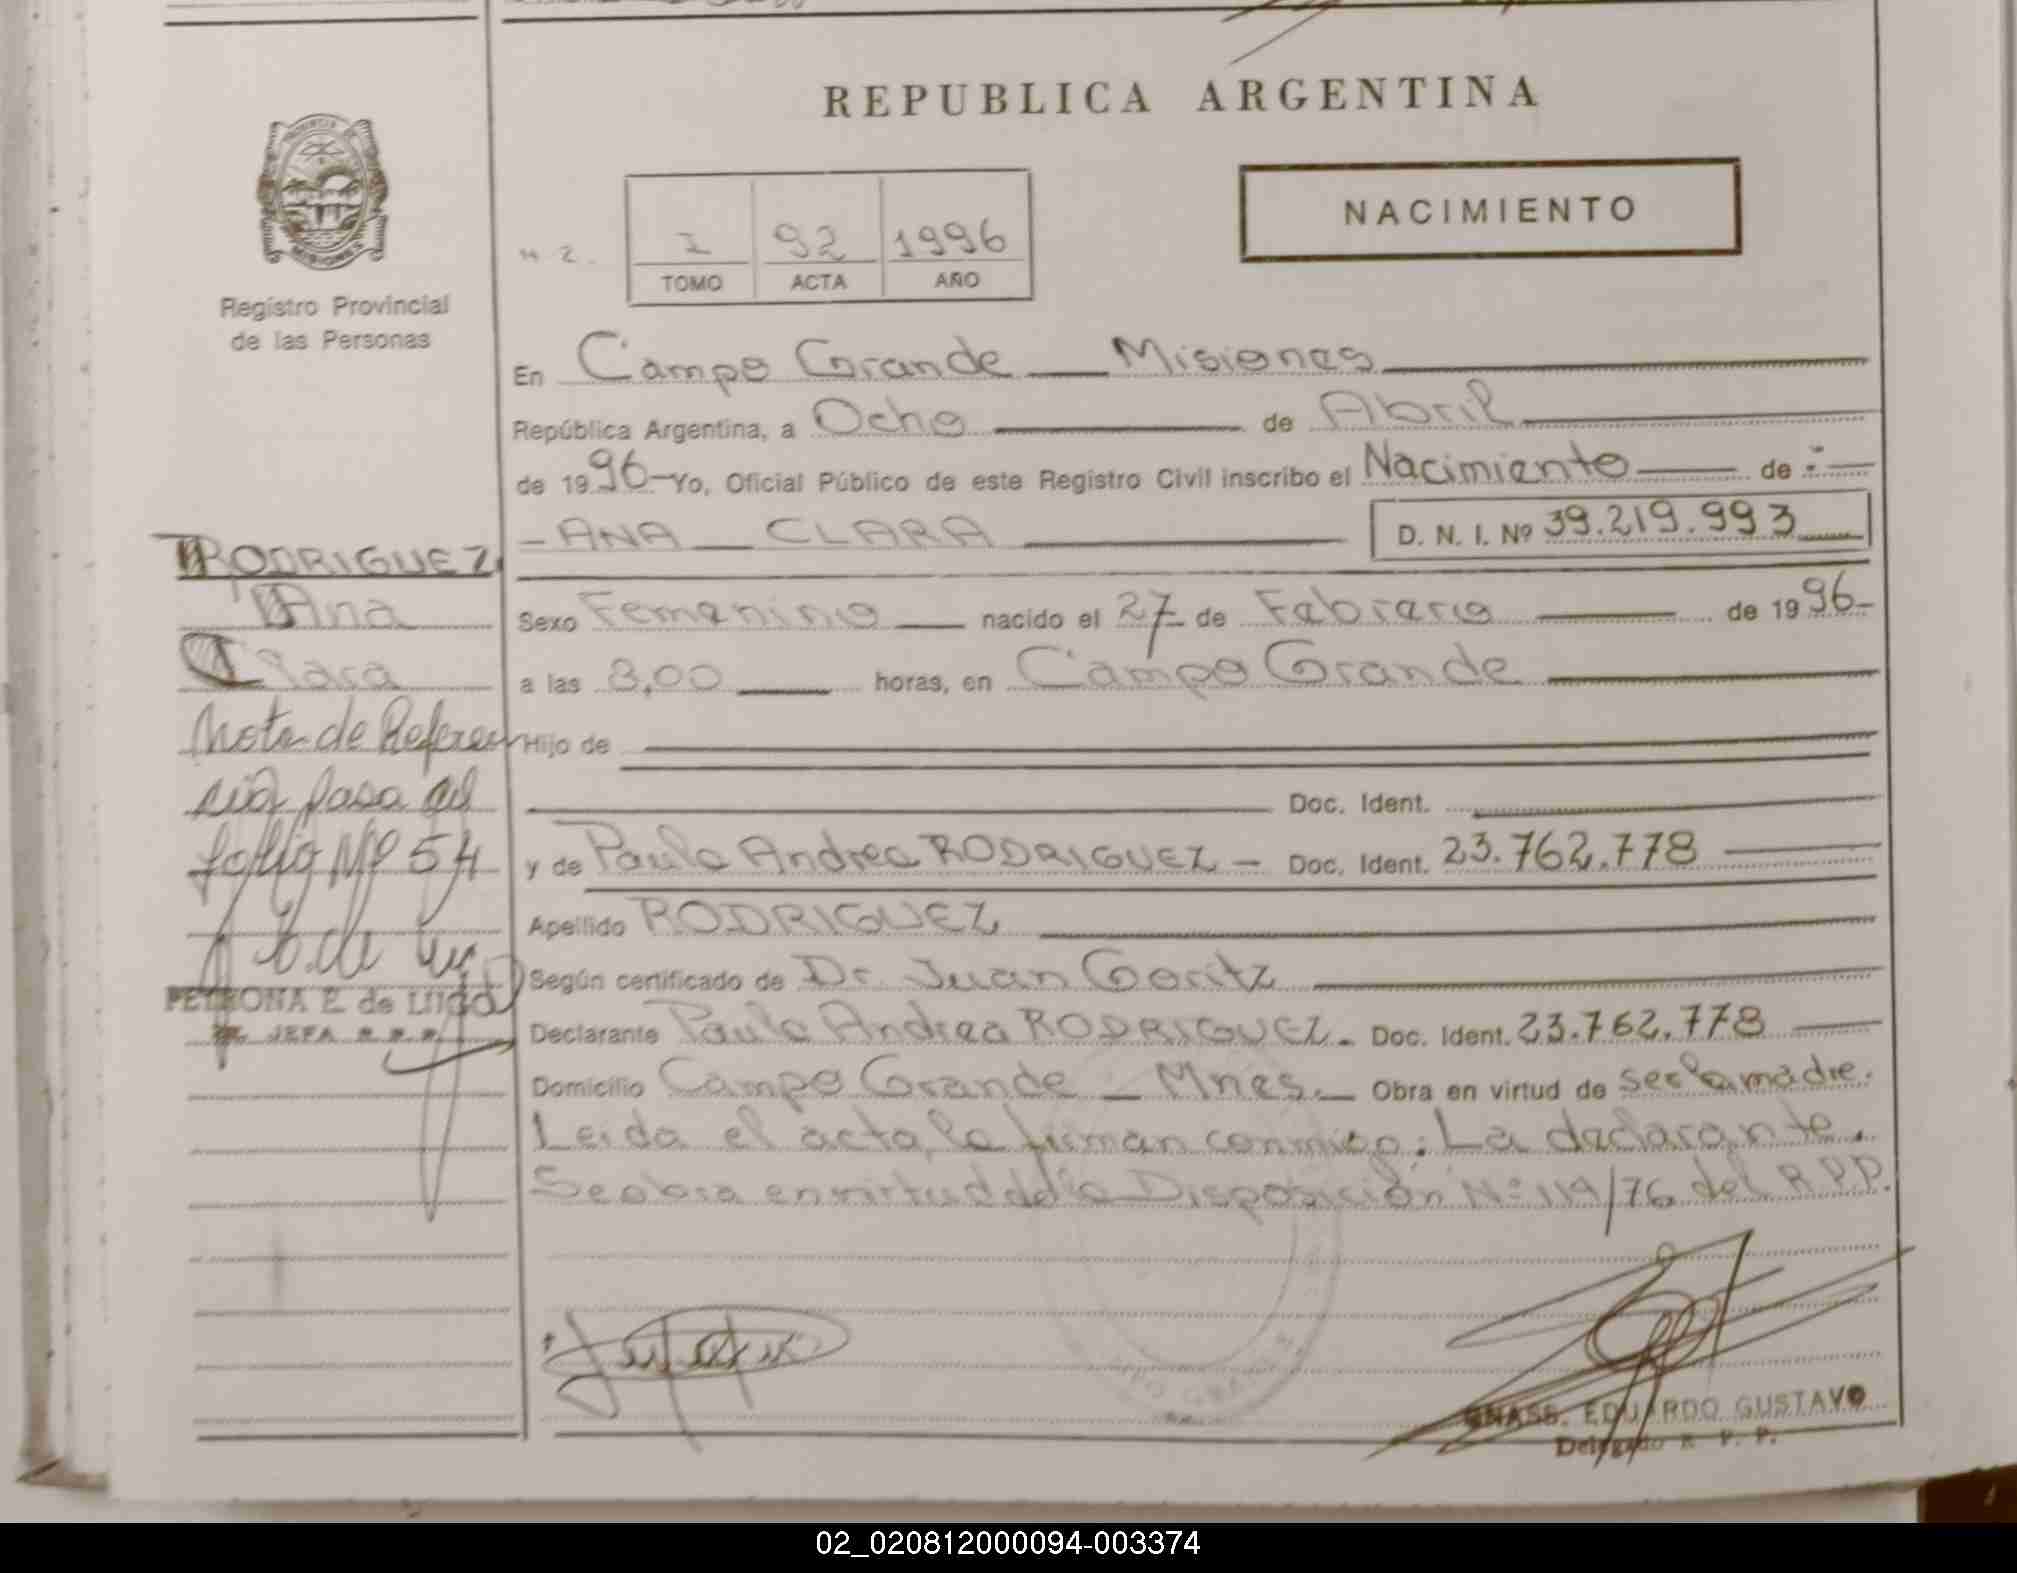 REPUBLICA ARGENTINA
PROVINCIA DE
MISIONES
Registro Provincial
de las Personas
NACIMIENTO
I 92 1996
TOMO ACTA AÑO
En Campo Grande — Misiones
República Argentina, a Ocho — de Abril
de 1996 - Yo, Oficial Público de este Registro Civil inscribo el Nacimiento — de
- ANA — CLARA — D. N. I. Nº 39.219.993
Sexo Femenino — nacido el 27 de Febrero — de 1996-
a las 8,00 — horas, en Campo Grande
Hijo de
Doc. Ident.
y de Paula Andrea RODRIGUEZ - Doc. Ident. 23.762.778
Apellido RODRIGUEZ
Según certificado de Dr. Juan Goritz
Declarante Paula Andrea RODRIGUEZ - Doc. Ident. 23.762.778
Domicilio Campo Grande — Mnes. — Obra en virtud de ser la madre.
Leida el acta, la firman conmigo: La declarante.
Se obra en virtud de la Disposición Nº 119/76 del R.P.P.
RODRIGUEZ
Ana
Clara
Nota de Referen
cia pasa al
folio Nº 54
PETRONA E. de LUGO
JEFA R.P.P.
GNASS. EDUARDO GUSTAVO
Delegado R. P. P.
02_020812000094-003374